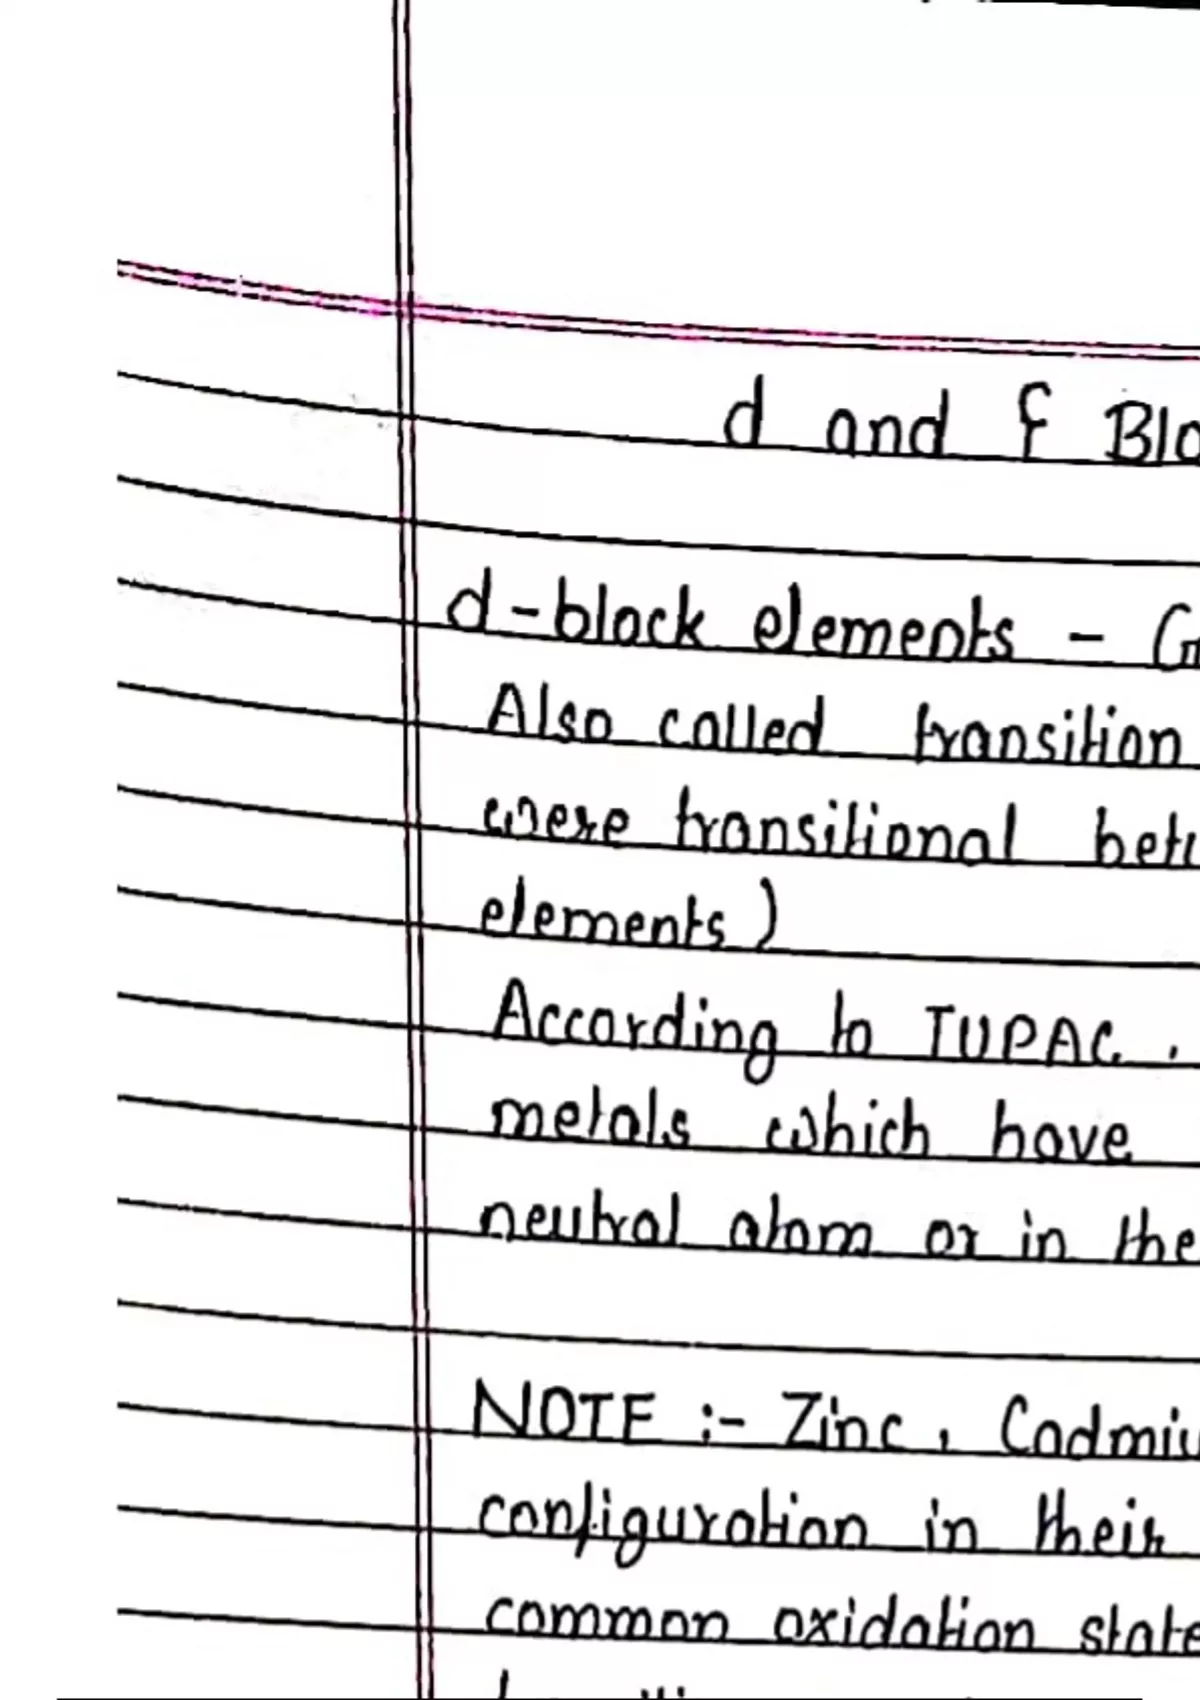 d and f Blo
d-block elements - G
Also called transition
were transitional betw
elements)
According to IUPAC,
metals which have
neutral atom or in the
NOTE :- Zinc, Cadmiu
configuration in their
common oxidation state